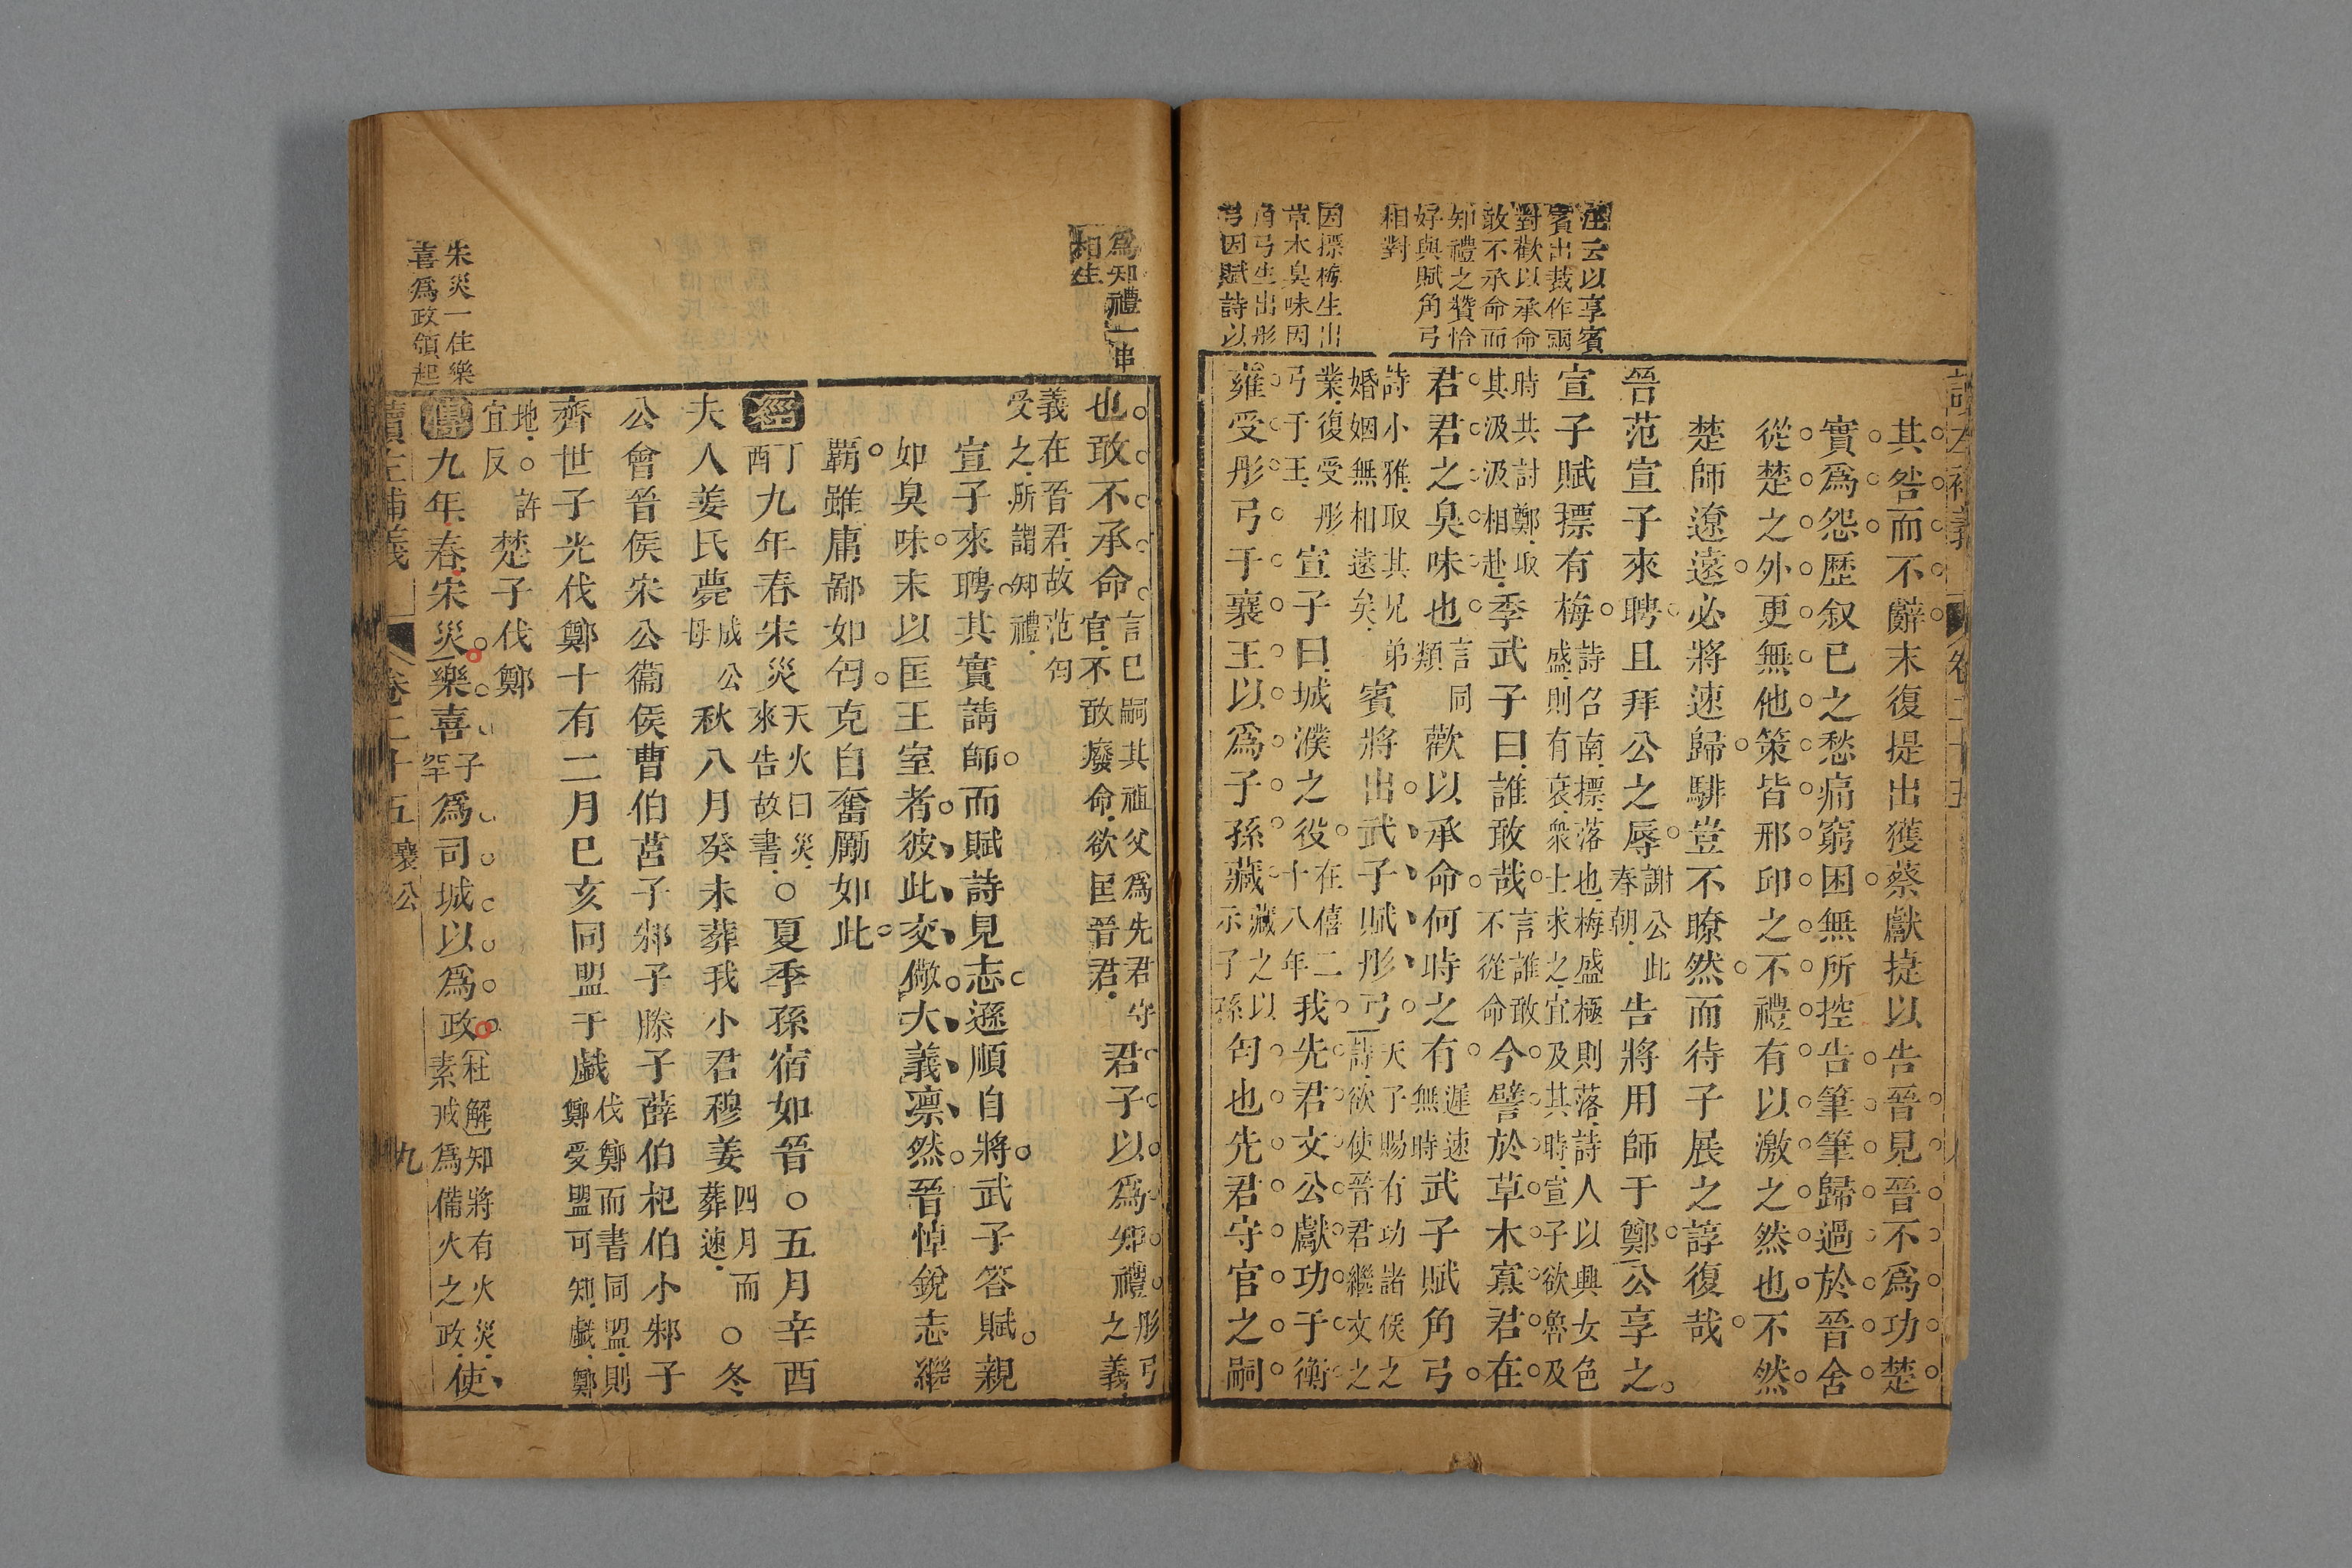 汪云以享賓
賓出裁作兩
對歡以承命
敢不承命而
知禮之贊恰
好與賦角弓
相對
因摽梅生出
草木臭味因
角弓生出彤
弓因賦詩以
其咎而不辭末復提出獲蔡獻捷以告晉見晉不為功楚
實為怨歷叙已之愁痛窮困無所控告筆筆歸過於晉舍
從楚之外更無他策皆邢卬之不禮有以激之然也不然
楚師遼遠必將速歸騑豈不瞭然而待子展之諄復哉
晉范宣子來聘且拜公之辱謝公此春朝告將用師于鄭公享之
宣子賦摽有梅詩召南摽落也梅盛極則落詩人以興女色盛則有衰衆士求之宜及其時宣子欲魯及
時共討鄭取其汲汲相赴季武子曰誰敢哉言誰敢不從命今譬於草木寡君在
君君之臭味也言同類歡以承命何時之有遲速無時武子賦角弓
詩小雅取其兄弟婚姻無相遠矣賓將出武子賦彤弓天子賜有功諸侯之詩欲使晉君繼文之
業復受彤弓于王宣子曰城濮之役在僖二十八年我先君文公獻功于衡
雍受彤弓于襄王以為子孫藏藏之以示子孫匄也先君守官之嗣
為知禮一串
相生
也敢不承命言已嗣其祖父為先君守官不敢廢命欲匡晉君君子以為知禮彤弓之義
義在晉君故范匄受之所謂知禮
宣子來聘其實請師而賦詩見志遜順自將武子答賦親
如臭味末以匡王室者彼此交儆大義凛然晉悼銳志繼
霸雖庸鄙如匄克自奮厲如此
經丁酉九年春宋災天火曰災來告故書○夏季孫宿如晉○五月辛酉
夫人姜氏薨成公母秋八月癸未葬我小君穆姜四月而葬速○冬
公會晉侯宋公衞侯曹伯莒子邾子滕子薛伯杞伯小邾子
齊世子光伐鄭十有二月己亥同盟于戲伐鄭而書同盟則鄭受盟可知戲鄭
地○許宜反楚子伐鄭
傳九年春宋災樂喜子罕為司城以為政杜解知將有火災素戒為備火之政使
宋災一住樂
喜為政領起
讀左補義 卷二十五 襄公 九